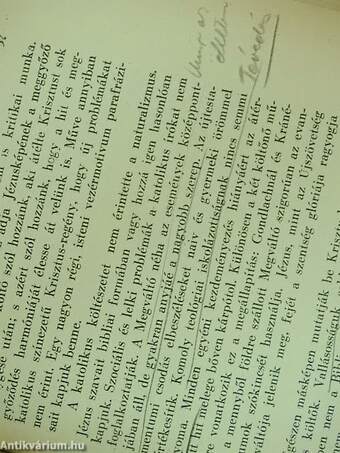 32
is kritikai munka,
adja Jézusképének a meggyőző
szól hozzánk, aki átélte Krisztust sok
végése után: s azért szól hozzánk, hogy a hit és meg-
győződés harmóniáját élesse át velünk is. Műve annyiban
katolikus színezetű Krisztus-regény, hogy új problémákat
nem érint. Egy nagyon régi, isteni vezérmotívum parafrázi-
sait kapjuk benne.
A katolikus költészetet nem érintette a naturalizmus.
Jézus szavait bibliai formában vagy hozzá igen hasonlóan
kapjuk. Szociális és lelki problémák a katolikus írókat nem
foglalkoztatják. A Megváltó néha az események középpont-
jában áll, de gyakran anyjáé a nagyobb szerep. Az újtesta-
mentumi csodás elbeszéléseket naív és gyermeki örömmel
értékesítik. Komoly teológiai iskolázottságnak nincs semmi
nyoma. Minden egyéni kezdeményezés hiányáért az átér-
zett hit melege bőven kárpótol. Különösen a két költőnő mű-
vére vonatkozik ez a megállapítás: Gondlachnál és Kráné-
a mennyből földre szállott Megváltó szigorúan az evan-
umok szókincsét használja. Jézus, mint az Újszövetség
váltója jelenik meg, fejét a szentség glóriája ragyogja
egészen másképen mutatják be Krisztus
s költők. Vallásosság
nem a Bibli
Tévedés
antikvarium.hu